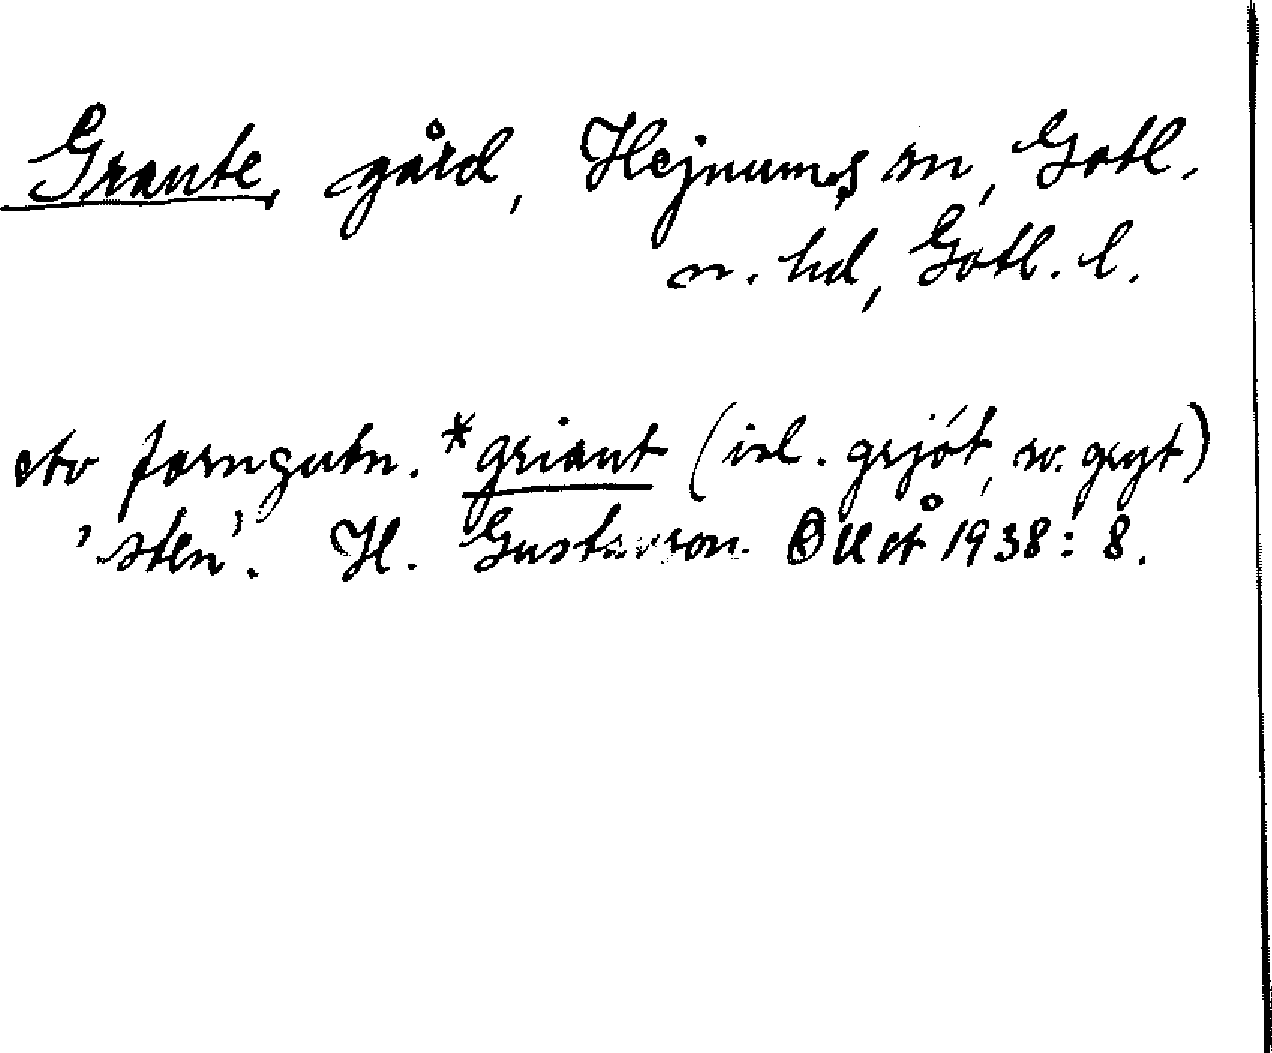 Graute, gård, Hejnums sn, Gotl.
n. hd, Gotl. l.
av forngutn. *griaut (isl. grjót, sv. gryt)
'sten'. H. Gustavson. OUÅ 1938: 8.